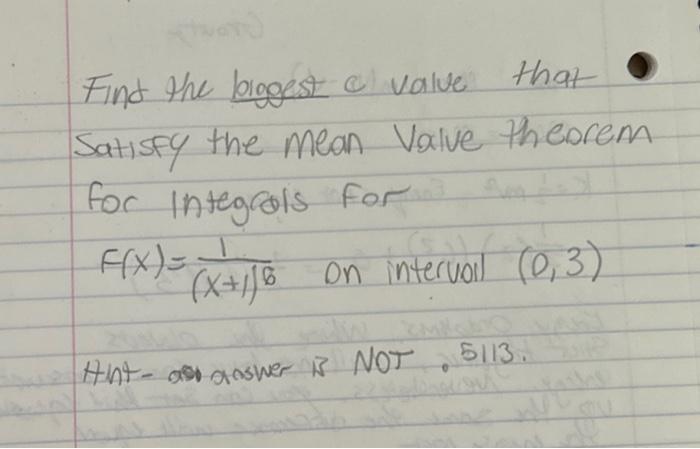 Find the biggest c value that
satisfy the mean Value theorem
for integrals for
F(x)= 1/(x+1)^6 on interval (0,3)
Hint- answer is NOT .5113.